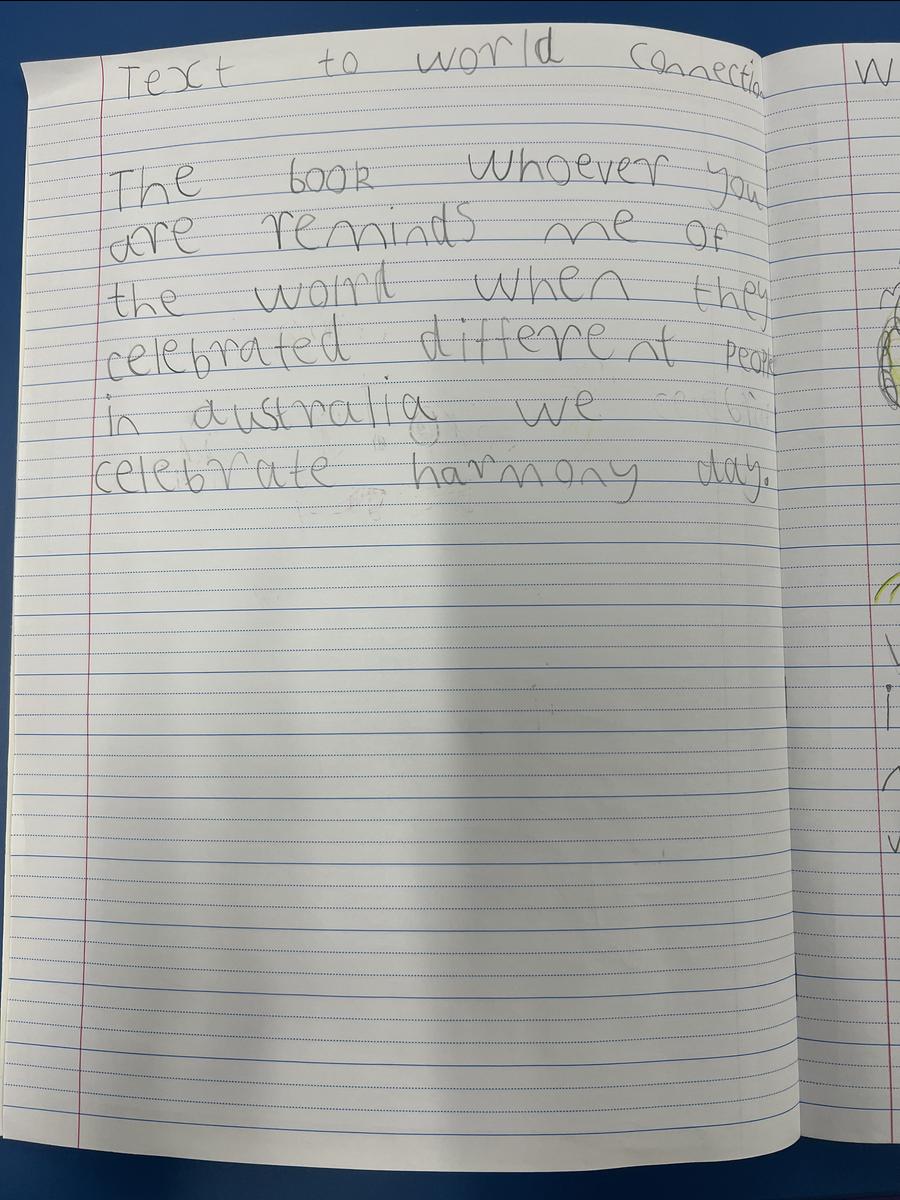 Text to world connection
The book Whoever you
are reminds me of
the world when they
celebrated different people
in australia we
celebrate harmony day.
W